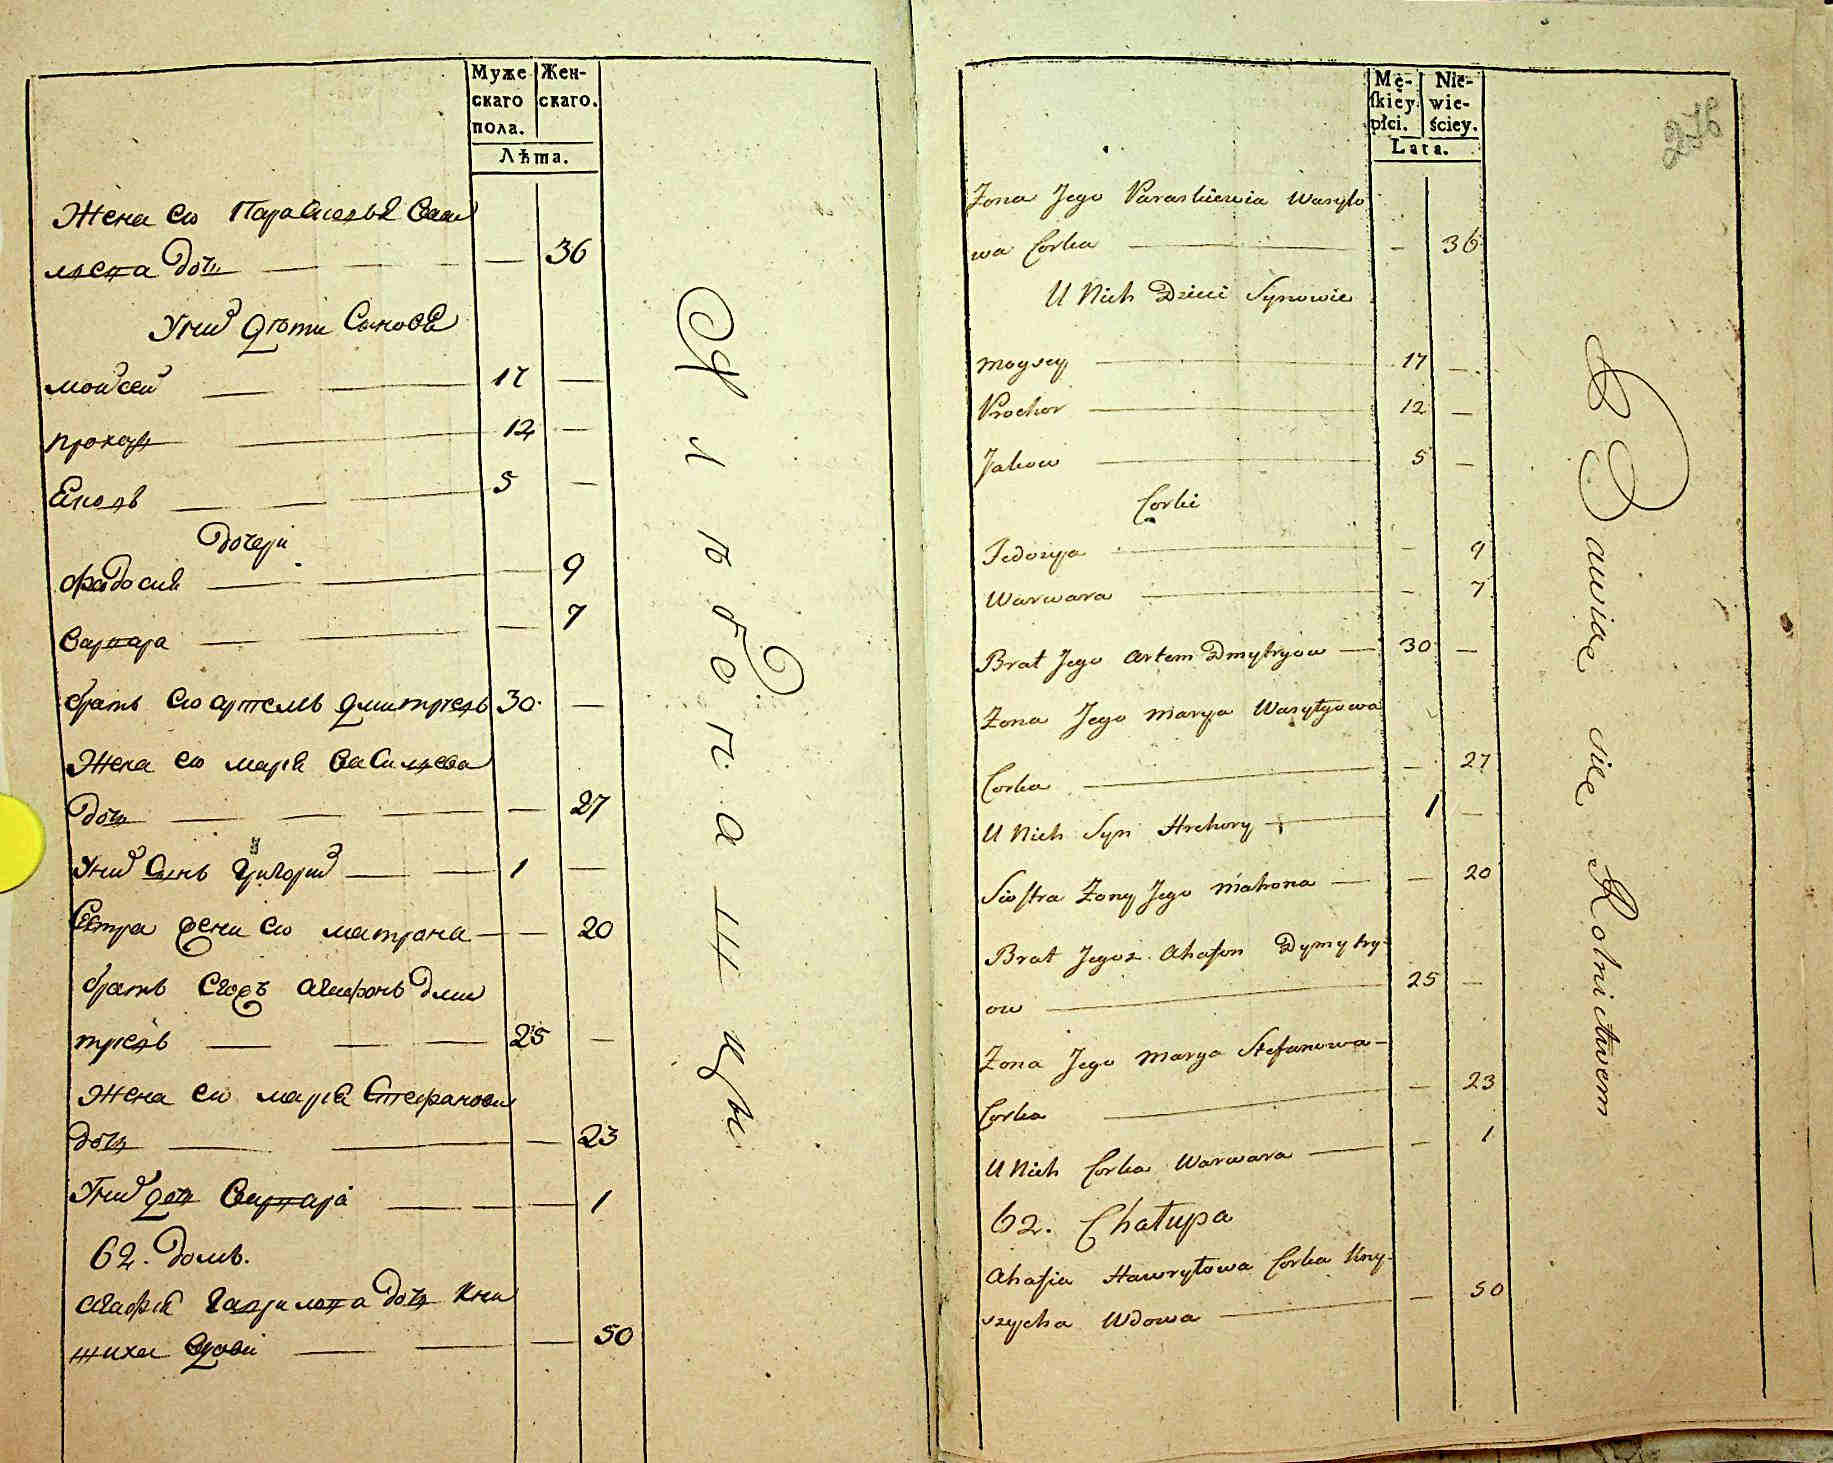 Муже
скаго
пола.
Жен-
скаго.
Лѣта.
Жена ево Парасковья Васи
льева дочь — — 36
У них дѣти Сыновья
моисей — 17 —
прохор — 12 —
Яковъ — 5 —
дочери
Фадосия — — 9
варвара — — 7
братъ ево артемъ дмитриевъ 30. —
Жена ево мария васильева
дочь — — 27
У них Сынъ Григорий — 1 —
Сестра жены ево матрона — — 20
братъ Егожъ агафонъ дми
триевъ — 25 —
Жена ево мария Стефанова
дочь — — 23
У них дочь варвара — — 1
62. домъ.
агафия гаврилова дочь Кни
шиха вдова — — 50
Хлѣбопашцы
Mę-
ſkiey
płci.
Nie-
wie-
ściey.
Lata.
276
Zona Jego Paraskiewia Wasylo
wa Corka — — 36
U Nich Dzieci Synowie
Moysey — 17 —
Prochor — 12 —
Jakow — 5 —
Corki
Fedosya — — 9
Warwara — — 7
Brat Jego Artem Dmytryow — 30 —
Zona Jego Marya Wasylyowa
Corka — — 27
U Nich Syn Hrehory — 1 —
Siostra Zony Jego Matrona — — 20
Brat Jegoz Ahafon Dymytry-
ow — 25 —
Zona Jego Marya Stefanowa —
Corka — — 23
U Nich Corka Warwara — — 1
62. Chałupa
Ahafia Hawryłowa Corka Kny-
szycha Wdowa — — 50
Bawiące się Rolnictwem